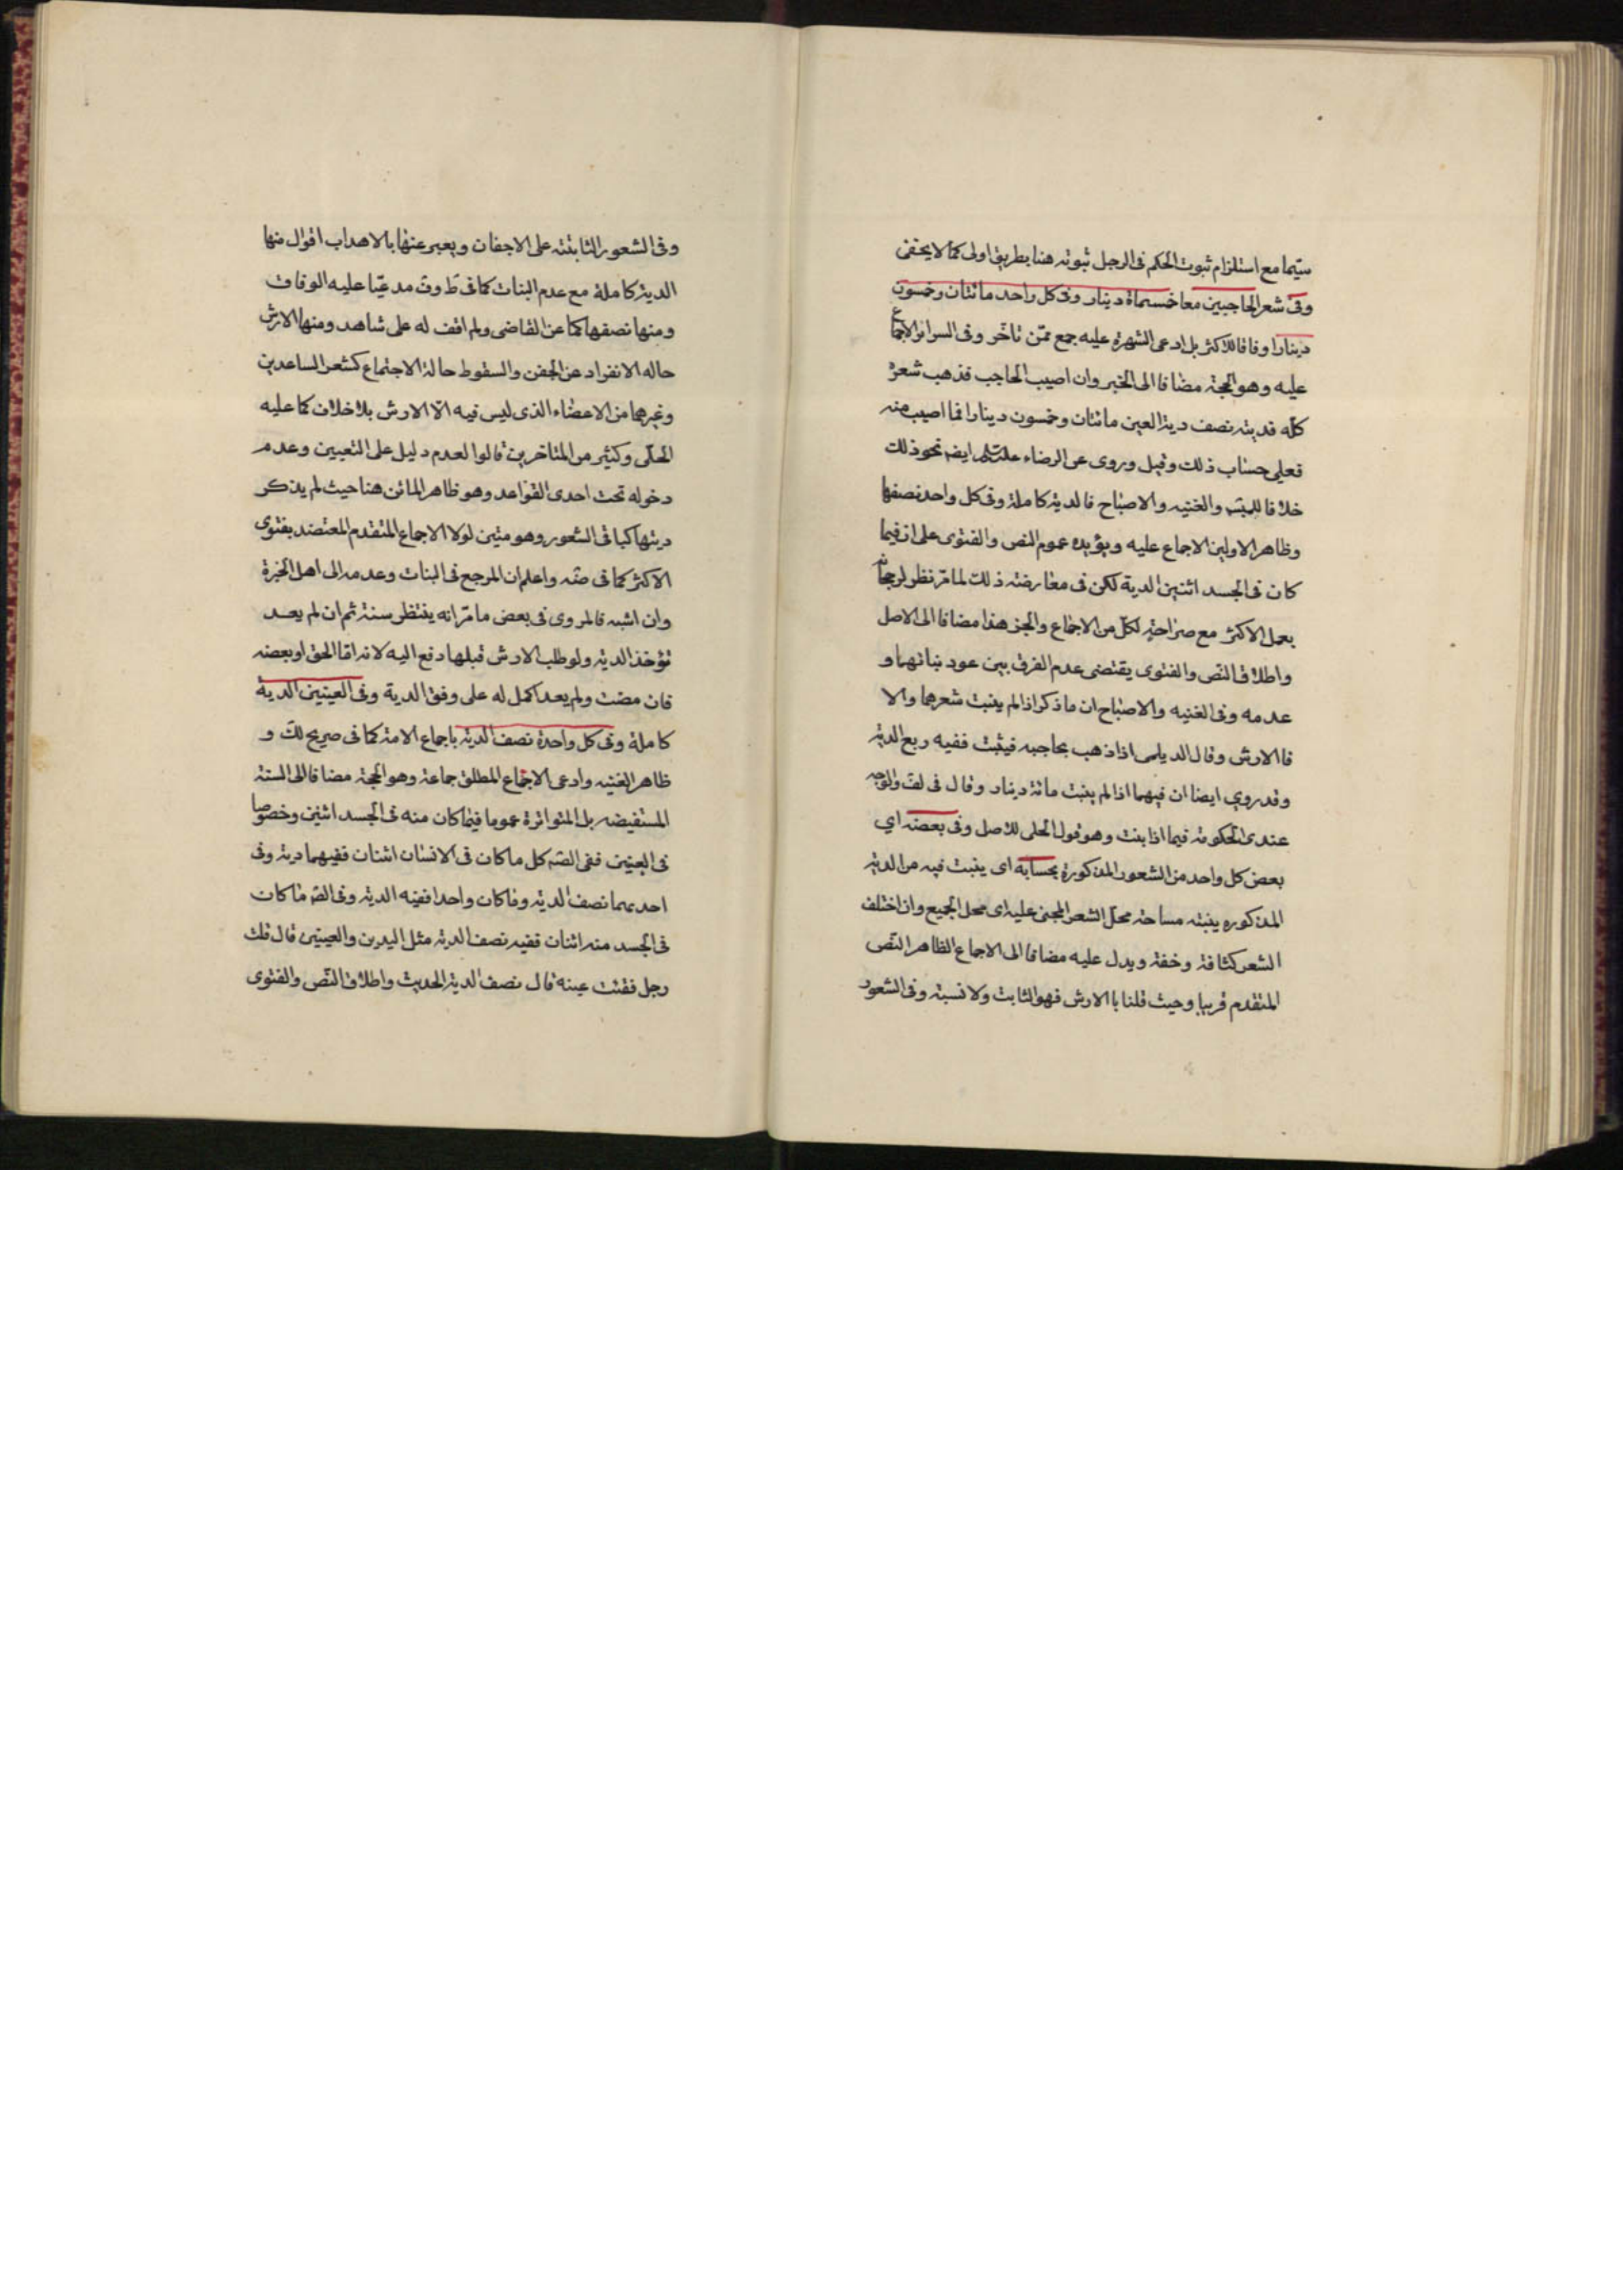 سيّما مع استلزام ثبوت الحكم فى الرجل ثبوته هنا بطريق اولى كما لا يخفى
وفى شعر الحاجبين معا خمسمأة دينار وفى كل واحد مائتان وخمسون
دينارا وفاقا للاكثر بل ادعى الشهرة عليه جمع ممّن تاخّر وفى السرائر الاجماع
عليه وهو الحجّة مضافا الى الخبر وان اصيب الحاجب فذهب شعره
كلّه فديته نصف دية العين مائتان وخمسون دينارا فما اصيب منه
فعلى حساب ذلك وقيل وروى عن الرضاء ايضا نحو ذلك
خلافا والغنيه والاصباح فالدية كاملة وفى كل واحد نصفها
وظاهر الاولين الاجماع عليه ويؤيده عموم النص والفتوى على ان فيما
كان فى الجسد اثنين الدية لكن فى معارضته ذلك لما مرّ نظر لرجحانه
بعمل الاكثر مع صراحة لكلّ من الاجماع والخبر هذا مضافا الى الاصل
واطلاق النص والفتوى يقتضى عدم الفرق بين عود نباتهما و
عدمه وفى الغنيه والاصباح ان ما ذكر اذا لم ينبت شعرهما والا
فالارش وقال الديلمى اذا ذهب بحاجبه فينبت ففيه ربع الدية
وقد روى ايضا ان فيهما اذا لم ينبت مائة دينار وقال فى لف والوجه
عندى الحكومة فيما اذا نبت وهو قول الحلى للاصل وفى بعضه اى
بعض كل واحد من الشعور المذكورة بحسابه اى يثبت فيه من الدية
المذكوره بنسبة مساحة محلّ الشعر المجنى عليه اى محل الجميع وان اختلف
الشعر كثافة وخفة ويدل عليه مضافا الى الاجماع الظاهر النّص
المتقدم قريبا وحيث قلنا بالارش فهو الثابت ولا نسبة وفى الشعور
وفى الشعور الثابتة على الاجفان ويعبر عنها بالاهداب اقوال منها
الدية كاملة مع عدم النبات كما فى ط وف مدعيّا عليه الوفاق
ومنها نصفها كما عن القاضى ولم اقف له على شاهد ومنها الارش
حاله الانفراد عن الجفن والسقوط حالة الاجتماع كشعر الساعدين
وغيرهما من الاعضاء الذى ليس فيه الّا الارش بلا خلاف كما عليه
الحلّى وكثير من المتاخرين قالوا لعدم دليل على التعيين وعدم
دخوله تحت احدى القواعد وهو ظاهر الماتن هنا حيث لم يذكر
ديتها كباقى الشعور وهو متين لولا الاجماع المتقدم المعتضد بفتوى
الاكثر كما فى ضه واعلم ان المرجع فى النبات وعدمه الى اهل الخبرة
وان اشبه فالمروى فى بعض ما مرّ انه ينتظر سنة ثم ان لم يعد
تؤخذ الدية ولو طلب الارش قبلها دفع اليه لانه امّا الحق او بعضه
فان مضت ولم يعد اكمل له على وفق الدية وفى العينين الدية
كاملة وفى كل واحدة نصف الدية باجماع الامة كما فى صريح لك و
ظاهر الغنيه وادعى الاجماع المطلق جماعة وهو الحجّة مضافا الى السنة
المستفيضه بل المتواترة عموما فيما كان منه فى الجسد اثنين وخصوصا
فى العينين ففى الصّ كل ما كان فى الانسان اثنان ففيهما دية وفى
احدهما نصف الدية وما كان واحدا ففيه الدية وفى الصّ ما كان
فى الجسد منه اثنان ففيه نصف الدية مثل اليدين والعينين قال قلت
رجل فقئت عينه قال نصف الدية الحديث واطلاق النّص والفتوى